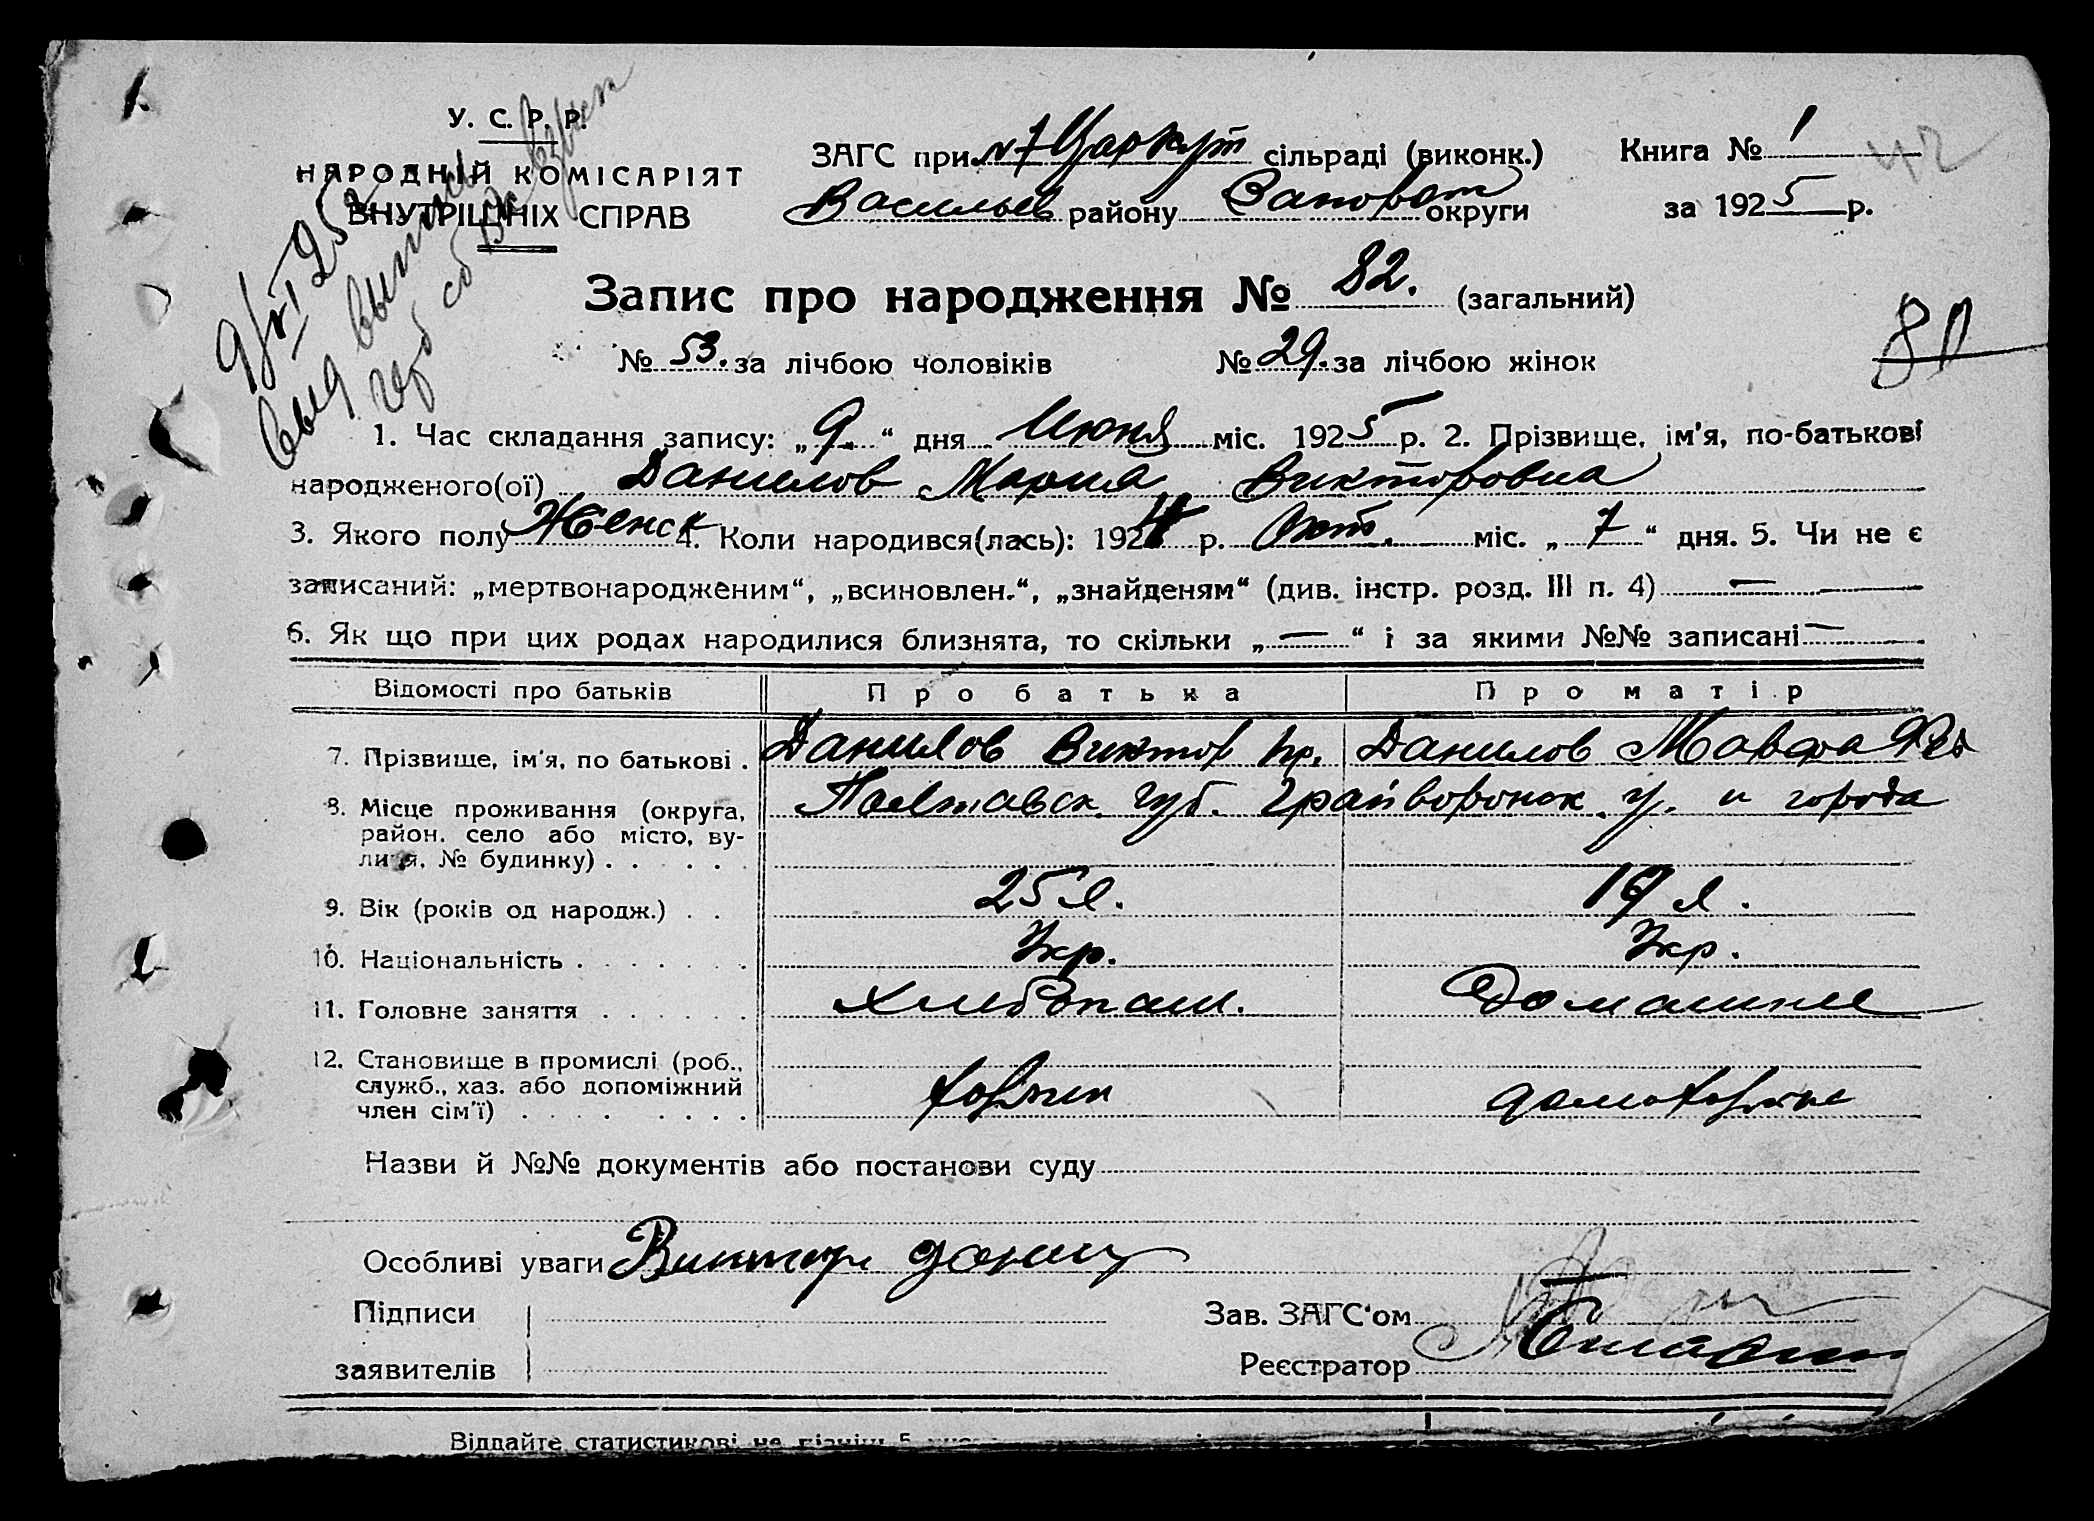 У. С. Р. Р.
НАРОДНІЙ КОМІСАРІЯТ
ВНУТРІШНІХ СПРАВ
ЗАГС при №7 сільраді (виконк.)
Васильев району Запорож округи
Книга № 1
42
за 1925 р.
Запис про народження № 82. (загальний)
80
№ 53. за лічбою чоловіків № 29. за лічбою жінок
1. Час складання запису: „9“ дня Июня міс. 1925 р. 2. Прізвище, ім'я, по-батькові
народженого(ої) Данилов Мария Викторовна
3. Якого полу Женск 4. Коли народився(лась): 1924 р. Окт. міс. „7“ дня. 5. Чи не є
записаний: „мертвонародженим“, „всиновлен.“, „знайденям“ (див. інстр. розд. III п. 4) —
6. Як що при цих родах народилися близнята, то скільки „—“ і за якими №№ записані —
Відомості про батьків Про батька Про матір
7. Прізвище, ім'я, по батькові . Данилов Виктор Данилов
8. Місце проживання (округа, Полтавск губ. Грайворонск у. и города
район, село або місто, ву-
лиця, № будинку) . . . . .
9. Вік (років од народж.) . . 25 л. 19 л.
10. Національність . . . . . . . Укр. Укр.
11. Головне заняття . . . . . . Хлебопаш. Домашнее
12. Становище в промислі (роб.,
служб., хаз. або допоміжний
член сім'ї) . . . . . . . .
Назви й №№ документів або постанови суду
Особливі уваги Виктор
Підписи
заявителів
Зав. ЗАГС'ом
Реєстратор
Віддайте статистикові не пізніш 5